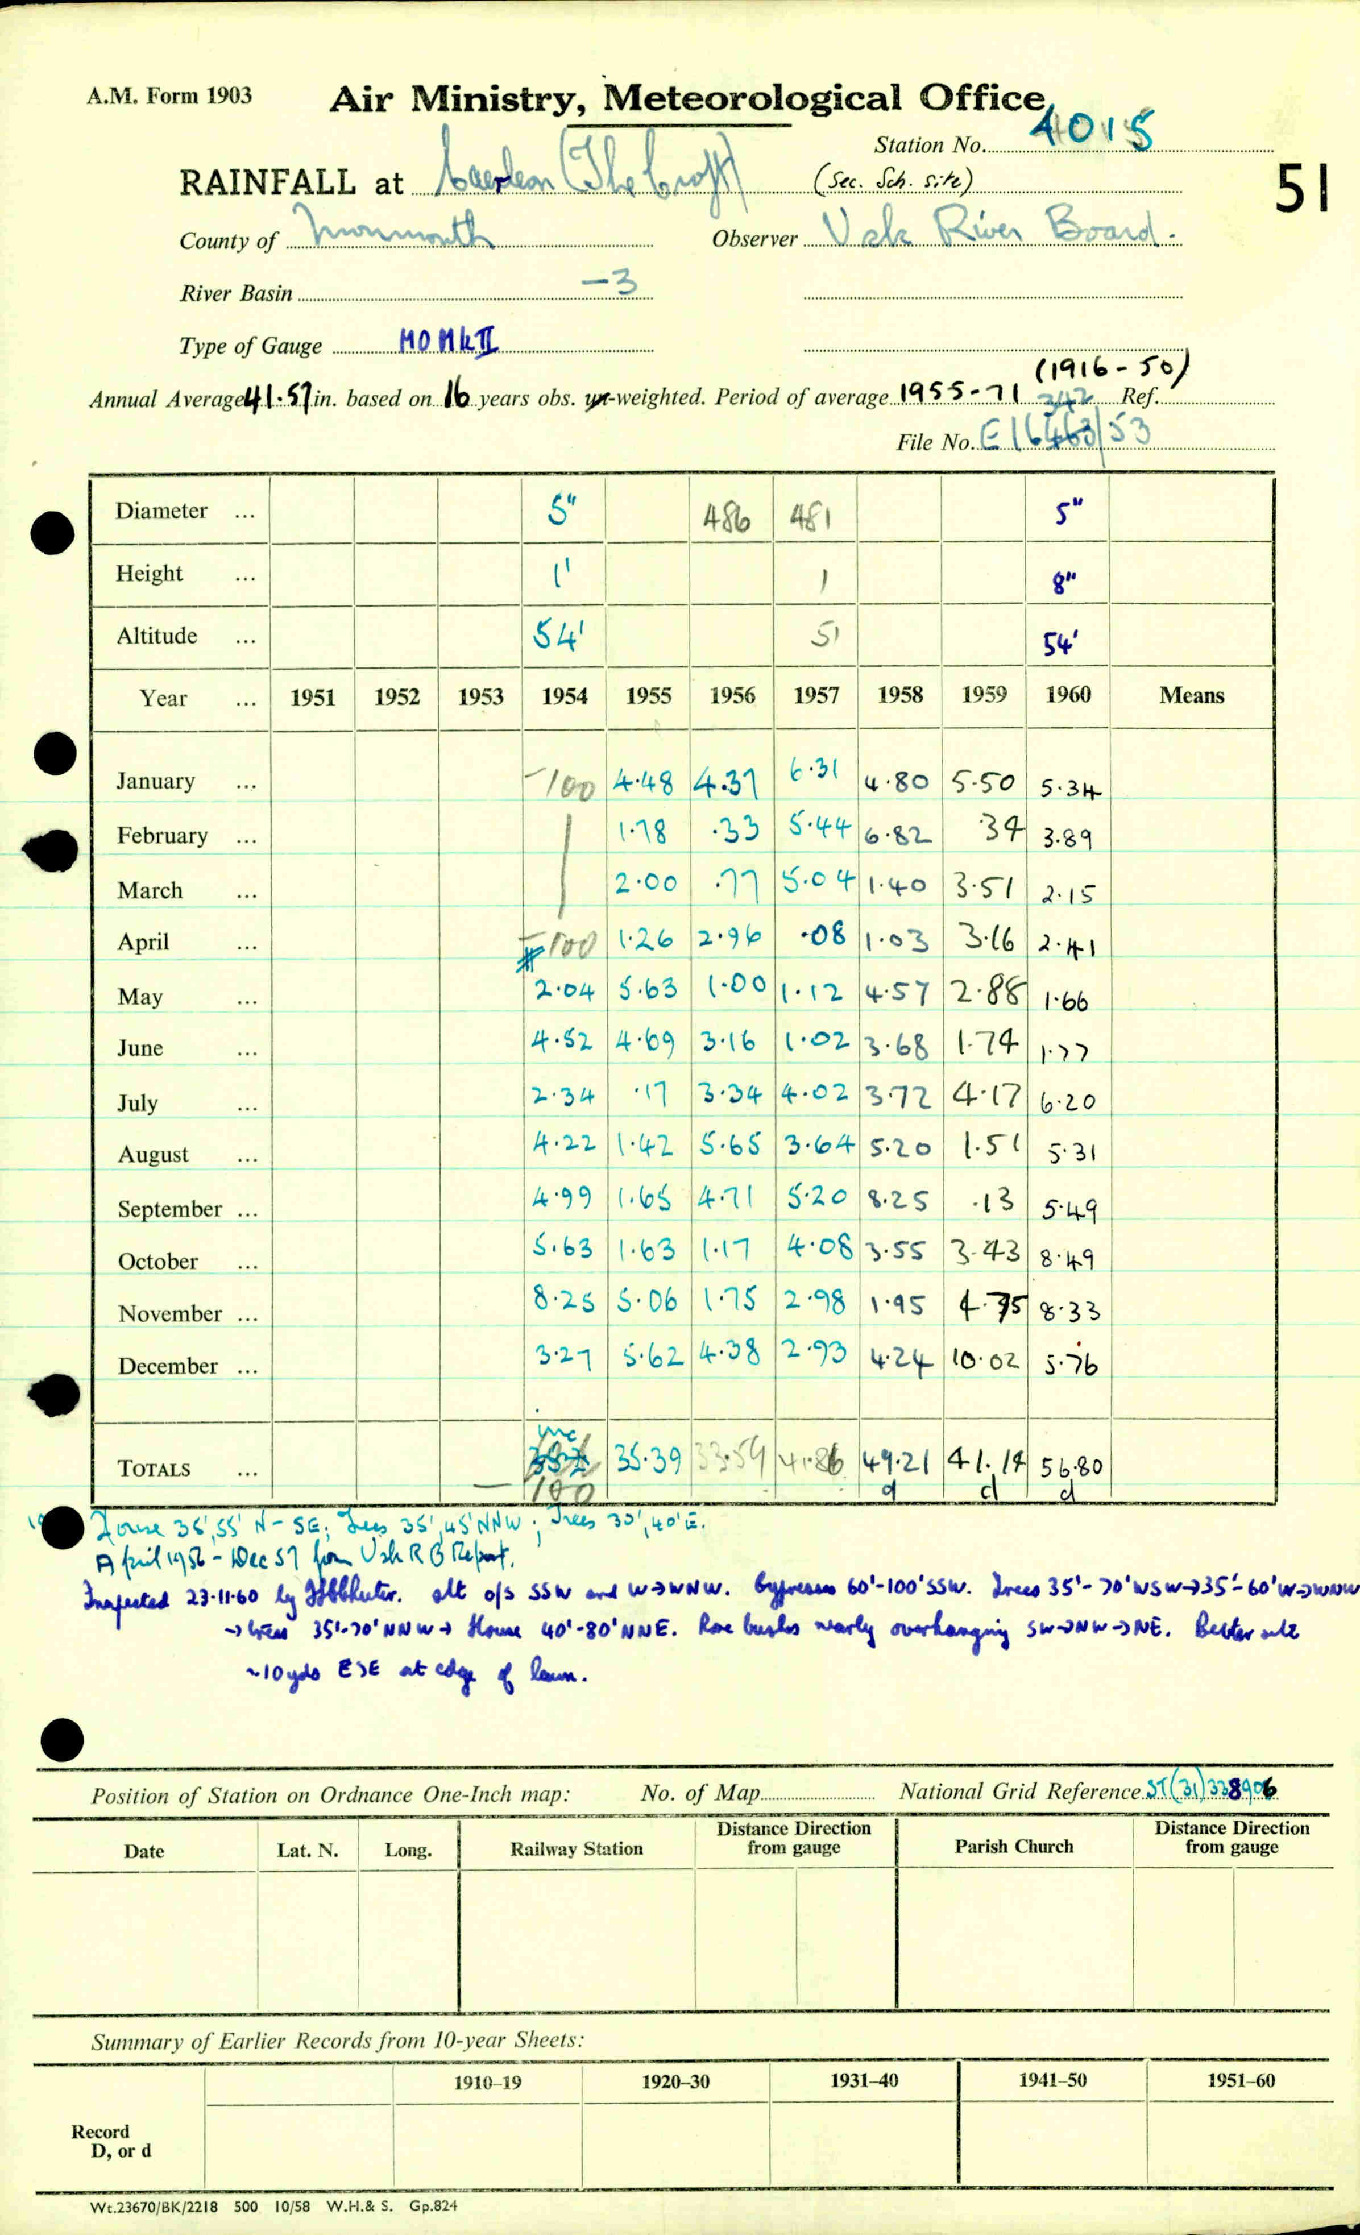 A.M. Form 1903
Air Ministry, Meteorological Office
Station No. 4015
RAINFALL at Caerleon (The Croft) (Sec. Sch. site)
51
County of Monmouth Observer Usk River Board.
River Basin -3
Type of Gauge MO Mk II
(1916-50)
Annual Average 41.57 in. based on 16 years obs. un-weighted. Period of average 1955-71 Ref.
342
File No. E16463/53
Diameter ... 5" 486 481 5"
Height ... 1' 1 8"
Altitude ... 54' 51 54'
Year ... 1951 1952 1953 1954 1955 1956 1957 1958 1959 1960 Means
January ... -100 4.48 4.37 6.31 4.80 5.50 5.34
February ... 1.78 .33 5.44 6.82 .34 3.89
March ... 2.00 .77 5.04 1.40 3.51 2.15
April ... -100 1.26 2.96 .08 1.03 3.16 2.41
May ... 2.04 5.63 1.00 1.12 4.57 2.88 1.66
June ... 4.52 4.69 3.16 1.02 3.68 1.74 1.77
July ... 2.34 .17 3.34 4.02 3.72 4.17 6.20
August ... 4.22 1.42 5.65 3.64 5.20 1.51 5.31
September ... 4.99 1.65 4.71 5.20 8.25 .13 5.49
October ... 5.63 1.63 1.17 4.08 3.55 3.43 8.49
November ... 8.25 5.06 1.75 2.98 1.95 4.75 8.33
December ... 3.27 5.62 4.38 2.93 4.24 10.02 5.76
inc
TOTALS ... 35.39 33.59 41.86 49.21 41.14 56.80
-100 d d d
House 36', 55' N - SE; Trees 35', 45' NNW; Trees 30', 40' E.
April 1956 - Dec 57 from Usk R B Report.
Inspected 23.11.60 by alt o/s SSW and W→WNW. Cypresses 60'-100' SSW. Trees 35'-70' WSW→35'-60' W→WNW
→trees 35'-70' NNW→ House 40'-80' NNE. Rose bushes nearly overhanging SW→NW→NE. Better site
~10 yds ESE at edge of lawn.
Position of Station on Ordnance One-Inch map: No. of Map National Grid Reference ST(31)338906
Date Lat. N. Long. Railway Station Distance Direction from gauge Parish Church Distance Direction from gauge
Summary of Earlier Records from 10-year Sheets:
1910–19 1920–30 1931–40 1941–50 1951–60
Record
D, or d
Wt.23670/BK/2218 500 10/58 W.H.& S. Gp.824